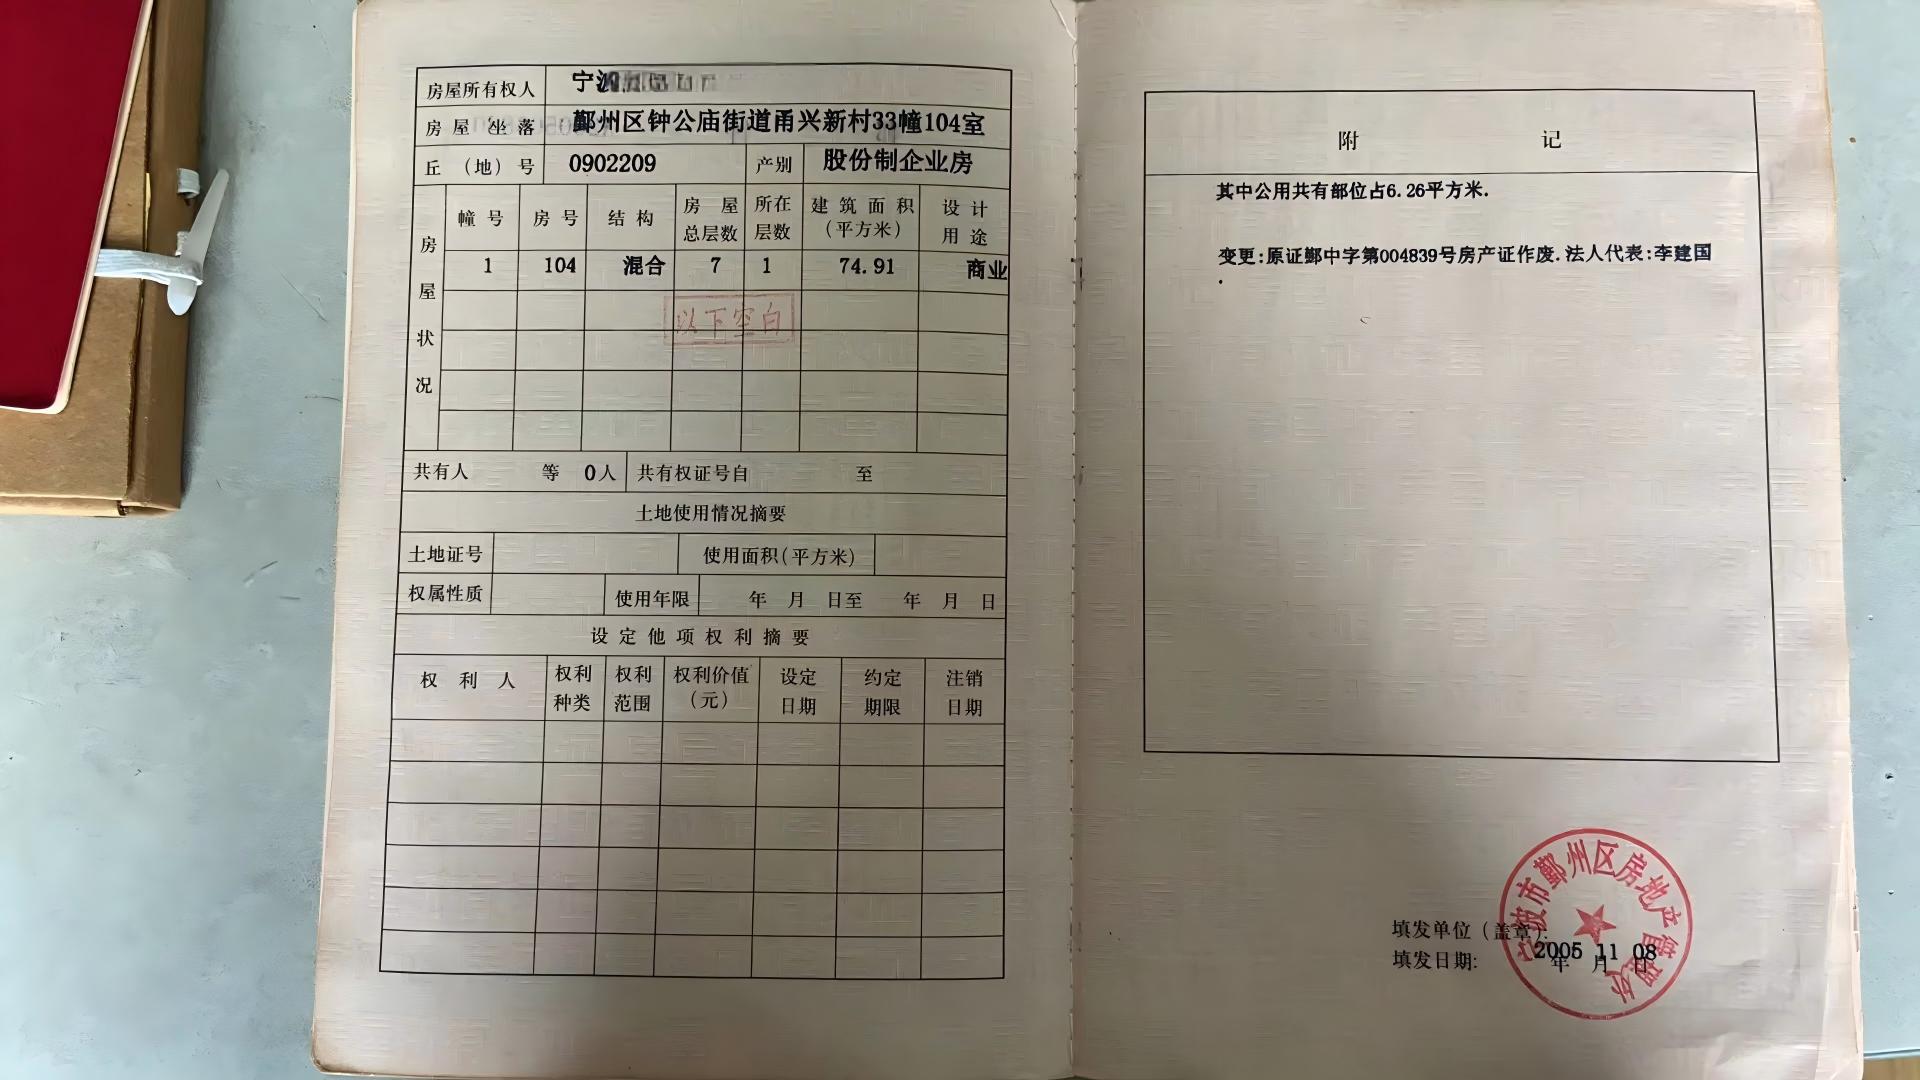 房屋所有权人 宁波
房屋坐落 鄞州区钟公庙街道甬兴新村33幢104室
丘（地）号 0902209 产别 股份制企业房
房屋状况
幢号 房号 结构 房屋总层数 所在层数 建筑面积（平方米） 设计用途
1 104 混合 7 1 74.91 商业
以下空白
共有人 等 0人 共有权证号自 至
土地使用情况摘要
土地证号 使用面积(平方米)
权属性质 使用年限 年 月 日至 年 月 日
设定他项权利摘要
权利人 权利种类 权利范围 权利价值（元） 设定日期 约定期限 注销日期
附记
其中公用共有部位占6.26平方米.
变更:原证鄞中字第004839号房产证作废.法人代表:李建国
.
宁波市鄞州区房地产管理处
填发单位（盖章）:
填发日期: 2005年11月08日